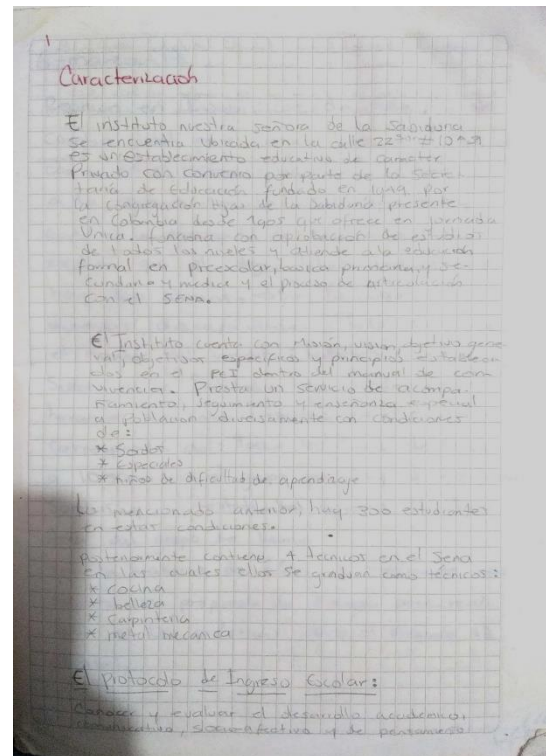 1
Caracterización
El instituto nuestra señora de la Sabiduria
se encuentra Ubicada en la calle 22
es un establecimiento educativo de caracter
Privado con convenio por parte de la Secre
taria de Educación fundado en por
la congregación hijas de la Sabiduria presente
en Colombia desde 1905 que ofrece en jornada
Unica, funciona con aprobación de estudios
de todos los niveles y atiende a la educación
formal en Preescolar, basica primaria, y se-
cundaria y media y el proceso de articulación
con el SENA.
El Instituto cuenta con Misión, visión, objetivo gene
ral, objetivos especificos y principios establecen
dos en el PEI dentro del manual de con
vivencia. Presta un servicio de acompa
ñamiento, seguimiento y enseñanza especial
a población diversamente con condiciones
de:
* Sordos
* Especiales
* niños de dificultad de aprendizaje
Lo mencionado anterior, hay 300 estudiantes
en estas condiciones.
Posteriormente contiene 4 tecnicos en el Sena
en las cuales ellos se graduan como tecnicos:
* Cocina
* belleza
* Carpinteria
* metal mecanica
El Protocolo de Ingreso Escolar:
Conocer y evaluar el desarrollo academico,
comunicativo, socio-afectivo y de pensamiento